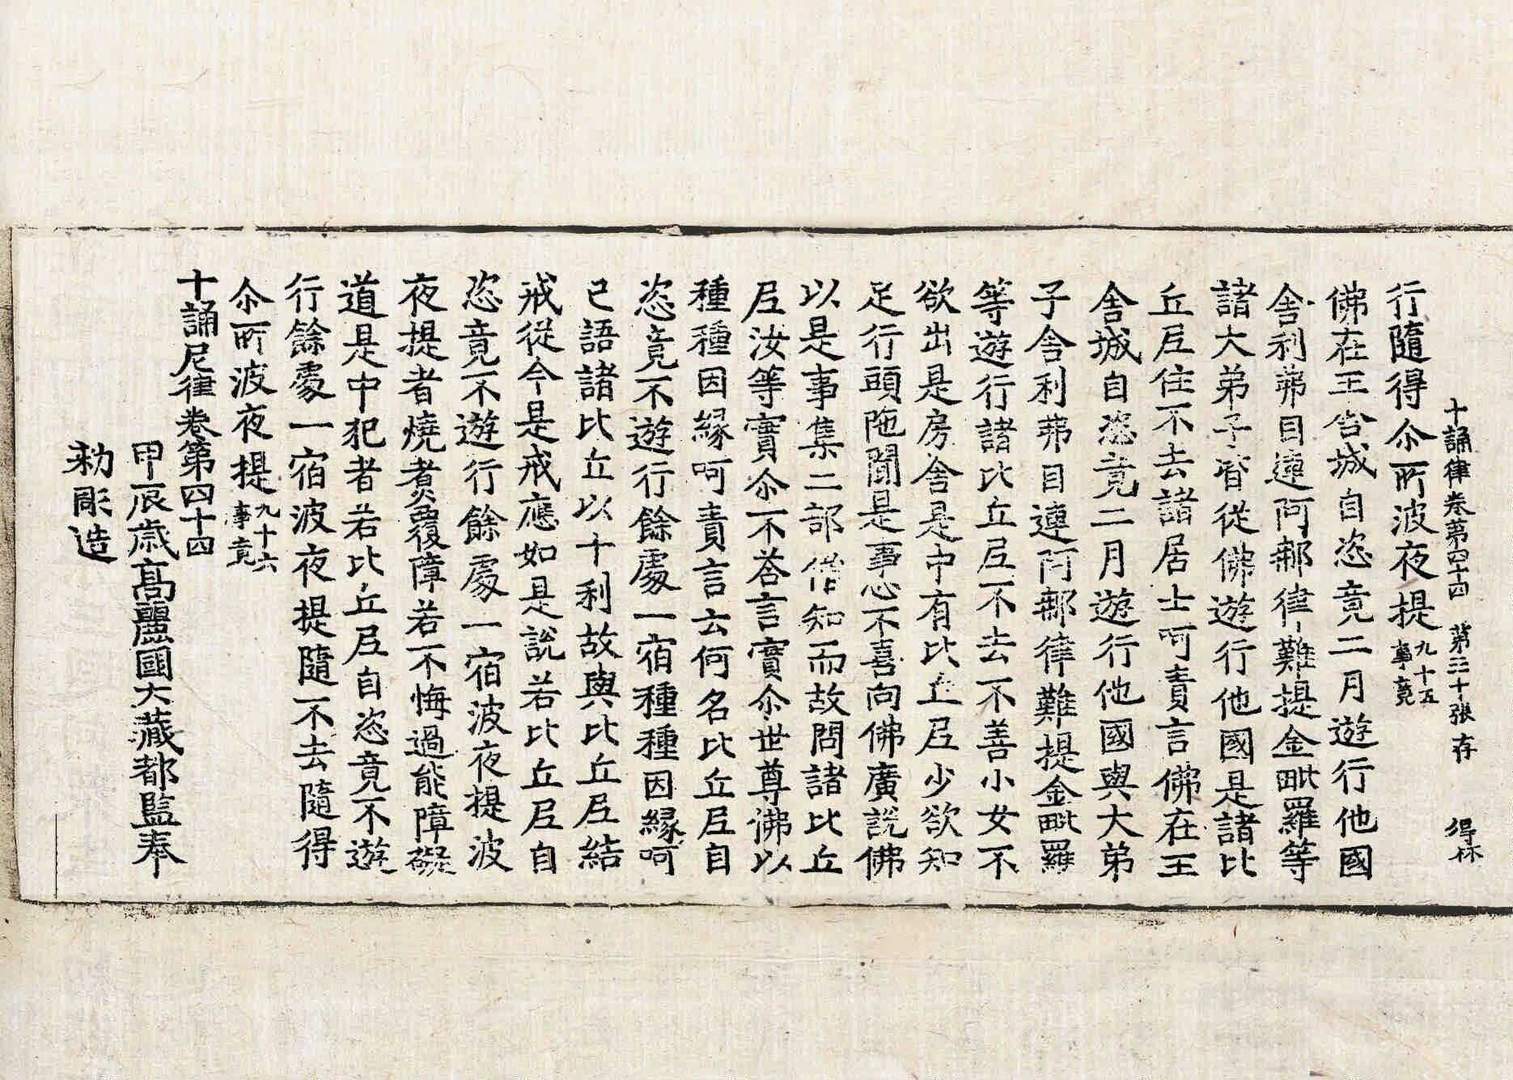 十誦律卷第四十四　第三十張　存　得林
行隨得尒所波夜提九十五事竟
佛在王舍城自恣竟二月遊行他國
舍利弗目連阿那律難提金毗羅等
諸大弟子皆從佛遊行他國是諸比
丘尼住不去諸居士呵責言佛在王
舍城自恣竟二月遊行他國與大弟
子舍利弗目連阿那律難提金毗羅
等遊行諸比丘尼不去不善小女不
欲出是房舍是中有比丘尼少欲知
足行頭陁聞是事心不喜向佛廣說佛
以是事集二部僧知而故問諸比丘
尼汝等實尒不荅言實尒世尊佛以
種種因緣呵責言云何名比丘尼自
恣竟不遊行餘處一宿種種因緣呵
已語諸比丘以十利故與比丘尼結
戒從今是戒應如是說若比丘尼自
恣竟不遊行餘處一宿波夜提波
夜提者燒煑覆障若不悔過能障礙
道是中犯者若比丘尼自恣竟不遊
行餘處一宿波夜提隨不去隨得
尒所波夜提九十六事竟
十誦尼律卷第四十四
甲辰歲高麗國大藏都監奉
勅彫造